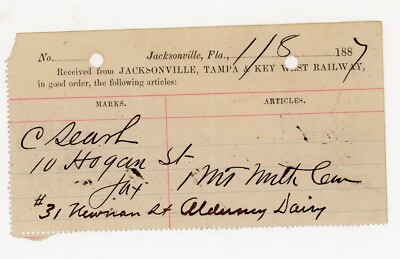 No. Jacksonville, Fla., 1/8 1887
Received from JACKSONVILLE, TAMPA & KEY WEST RAILWAY,
in good order, the following articles:
MARKS. ARTICLES.
C
10 Hogan St
Jax 1 Mt Milk Can
#31 Newnan St Alderney Dairy